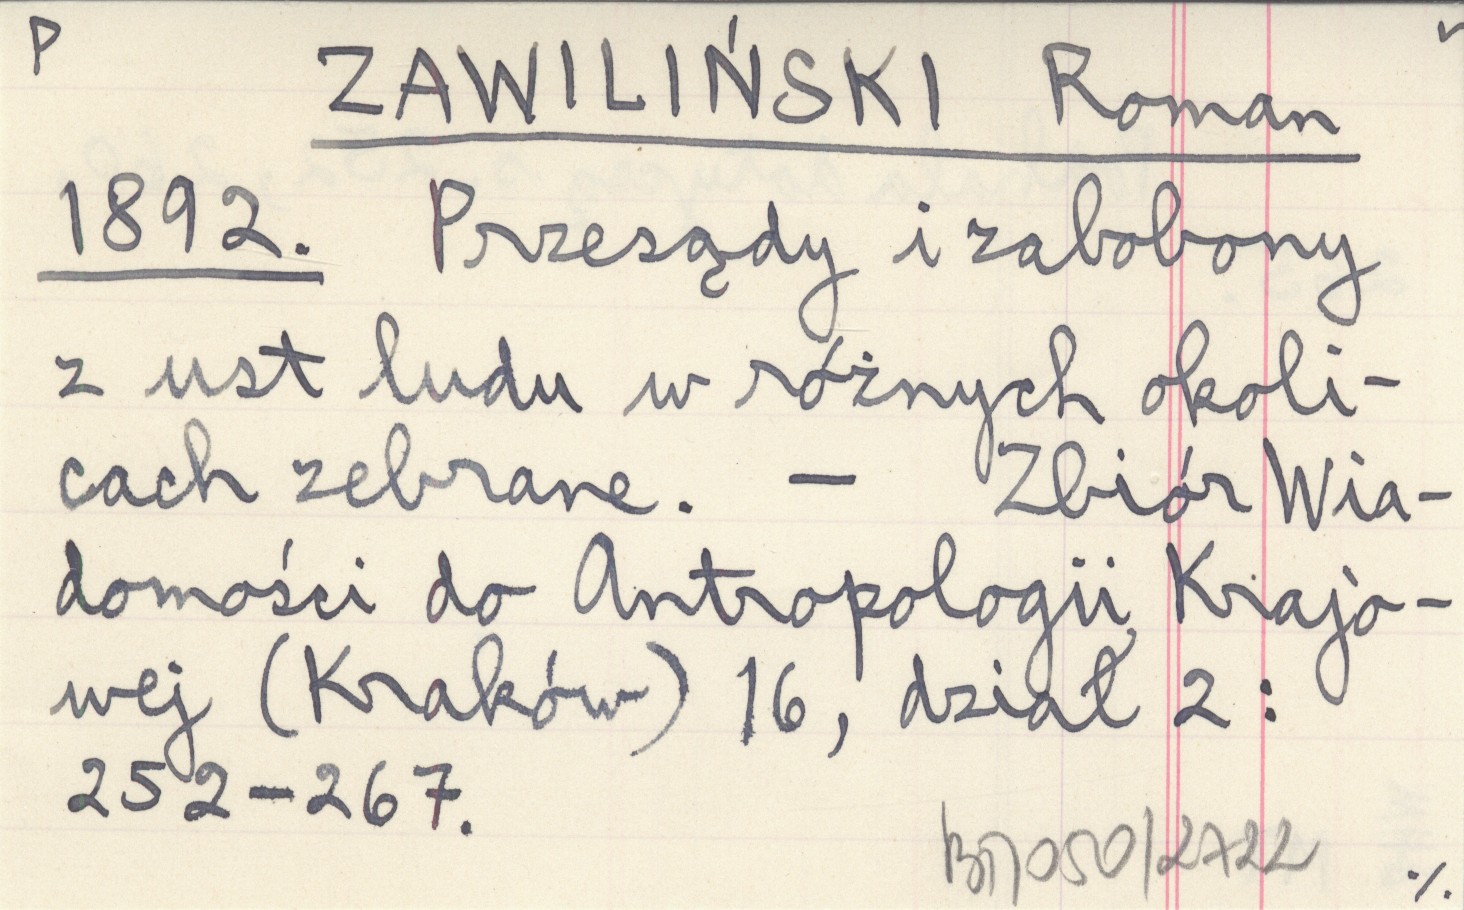 P
ZAWILIŃSKI Roman
1892. Przesądy i zabobony
z ust ludu w różnych okoli-
cach zebrane. – Zbiór Wia-
domości do Antropologii Krajo-
wej (Kraków) 16, dział 2:
252-267.
050/2722
./.